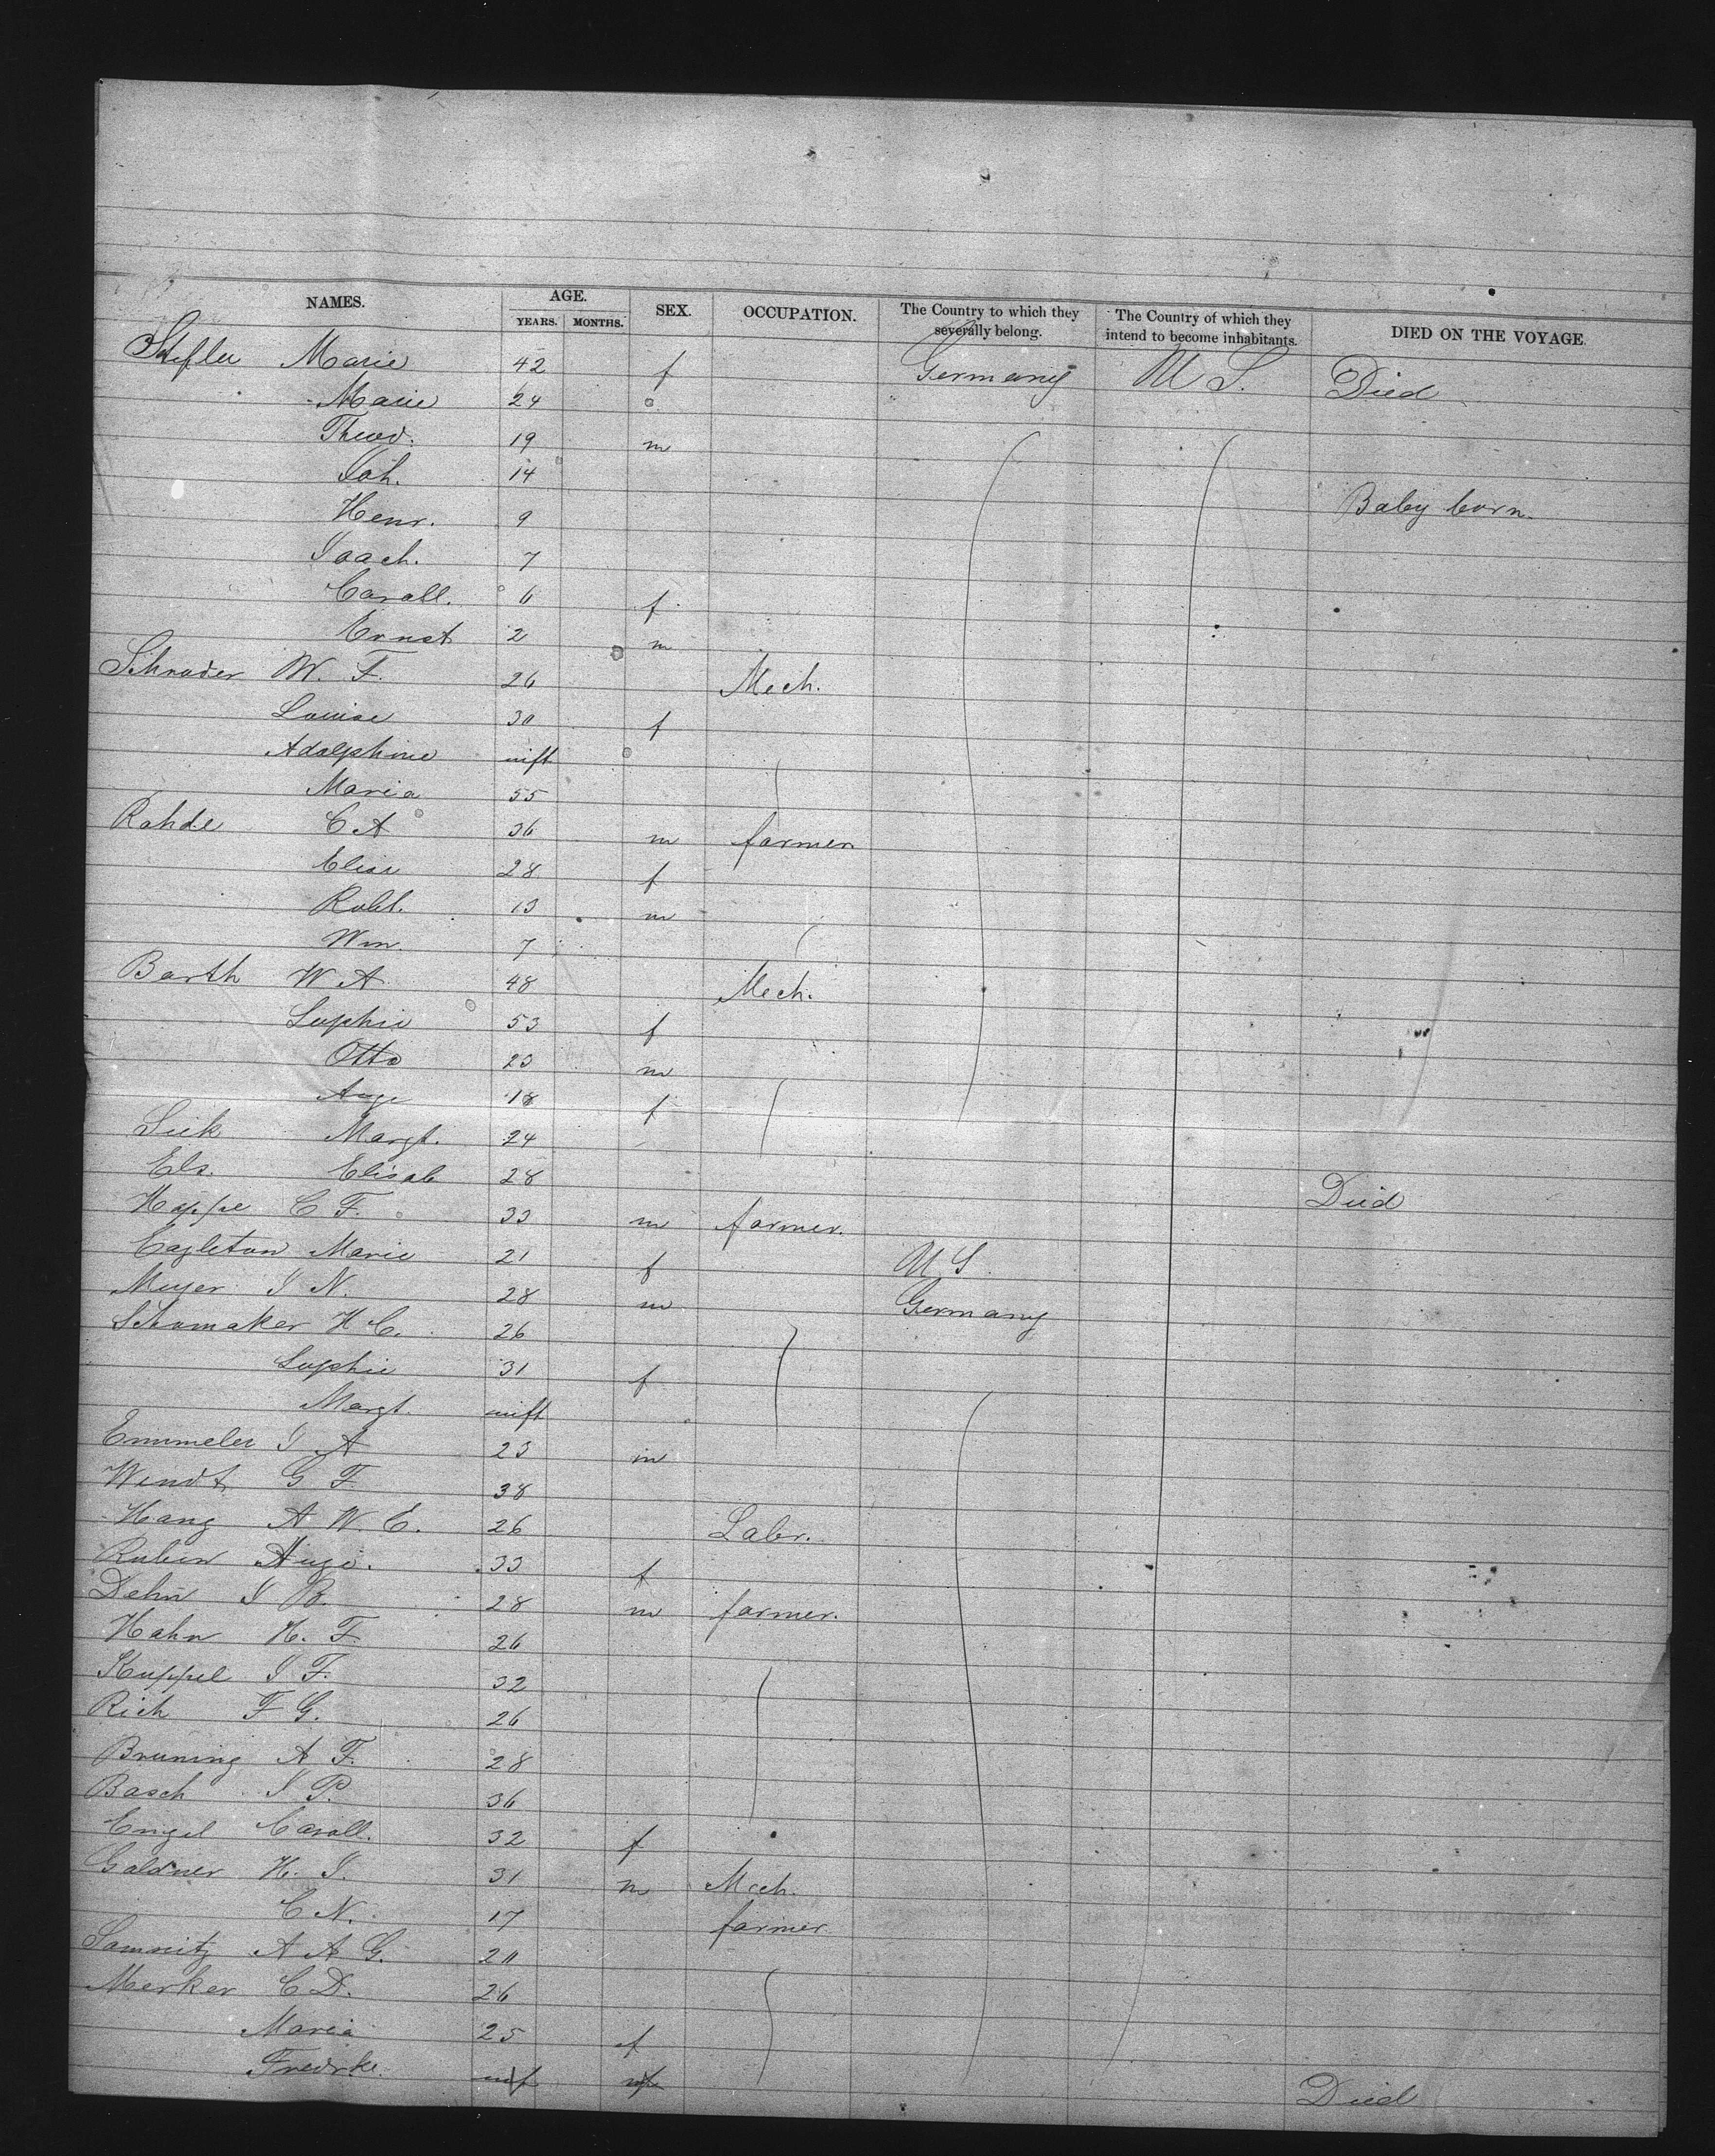 NAMES. AGE. SEX. OCCUPATION. The Country to which they severally belong. The Country of which they intend to become inhabitants. DIED ON THE VOYAGE.
YEARS. MONTHS.
Marie 42 f Germany U S. Died
Marie 24
Theod. 19 m
Joh. 14
Henr. 9 Baby born.
Joach. 7
Caroll. 6 f
Ernst 2 m
Schrader W. F. 26 Mech.
Louise 30 f
Adolphine inft
Maria 55
Rohde C A 36 m farmer
Elise 28 f
Robt. 13 m
Wm. 7
Barth W A 48 Mech.
Sophie 53 f
Otto 23 m
Auge 18 f
Sick Margt. 24
Els. Elisab 28 Died
Hoppe C F. 33 m farmer.
Eagleton Marie 21 f U S.
Meyer J N. 28 m Germany
Schomaker H C. 26
Sophie 31 f
Margt. inft
Emmeler J A 23 m
Wendt G F. 38
Hang A W. E. 26 Labr.
Rubien Auge. 33 f
Dehn J B. 28 m farmer.
Hahn H. F. 26
Kuppel J F. 32
Rich F G. 26
Bruning A F. 28
Basch J P. 36
Engel Caroll. 32 f
Goldner H. J. 31 m Mech.
C N. 17 farmer
A A G. 20
Merker C D. 26
Maria 25 f
Fredrke. inft Died